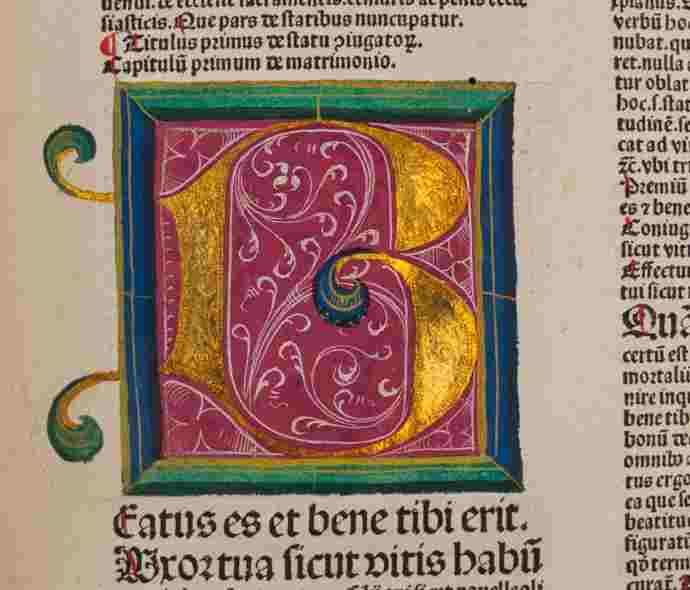 siasticis. Que pars de statibus nuncupatur.
¶ Titulus primus de statu ꝯiugatoꝝ.
Capitulū primum de matrimonio.
B
Eatus es et bene tibi erit.
Uxor tua sicut vitis habū
verbū ho
nubat. qu
ret. nulla
tur oblat
hoc. s. stat
tudinē. se
cat ad vi
⁊c. vbi tr
Premiū
es ⁊ bene
Coniug
sicut viti
Effectu
tui sicut
Qua
certū est
mortaliū
nire inqu
bene tib
bonū de
omnib
tus ergo
ca que se
beatitu
figurat
qd term
curat.